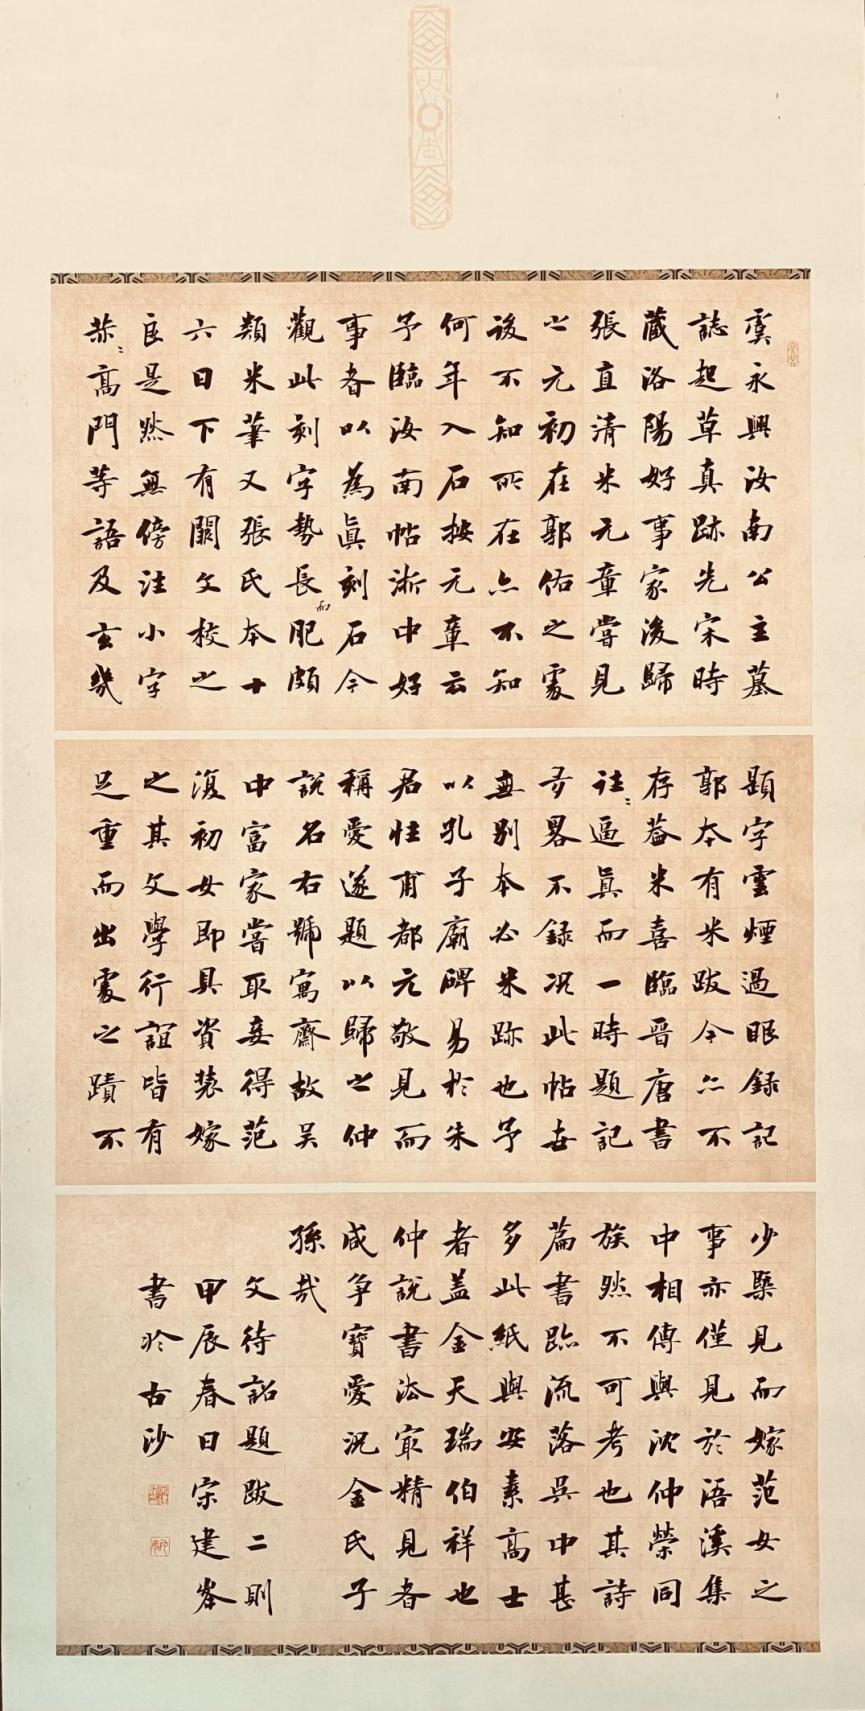 虞永興汝南公主墓
誌起草真跡先宋時
藏洛陽好事家後歸
張直清米元章嘗見
之元初在郭佑之處
後不知所在亦不知
何年入石按元章云
予臨汝南帖浙中好
事者以為真刻石今
觀此刻字勢長而肥頗
類米筆又張氏本十
六日下有闕文校之
良是然無傍注小字
恭〻高門等語及玄幾
題字雲煙過眼錄記
郭本有米跋今亦不
存蓋米喜臨晉唐書
往〻逼真而一時題記
亦畧不錄況此帖世
無別本必米跡也予
以孔子廟碑易於朱
君性甫都元敬見而
稱愛遂題以歸之仲
說名右號寓齋故吳
中富家嘗取妾得范
復初女即具資裝嫁
之其文學行誼皆有
足重而出處之蹟不
少槩見而嫁范女之
事亦僅見於浯溪集
中相傳與沈仲榮同
族然不可考也其詩
篇書跡流落吳中甚
多此紙與安素高士
者蓋金天瑞伯祥也
仲說書法最精見者
咸爭寶愛況金氏子
孫哉
文待詔題跋二則
甲辰春日宗建峯
書於古沙